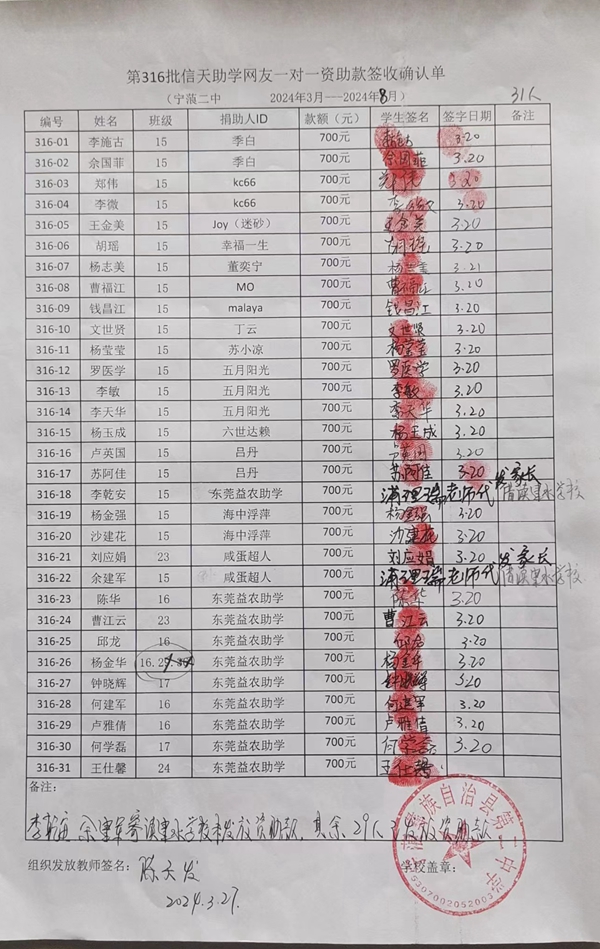 第316批信天助学网友一对一资助款签收确认单
（宁蒗二中 2024年3月---2024年8月） 31人
编号 姓名 班级 捐助人ID 款额（元） 学生签名 签字日期 备注
316-01 李施古 15 季白 700元 3.20
316-02 余国菲 15 季白 700元 余国菲 3.20
316-03 郑伟 15 kc66 700元 郑伟 3.20
316-04 李微 15 kc66 700元 李微 3.20
316-05 王金美 15 Joy（迷砂） 700元 王金美 3.20
316-06 胡瑶 15 幸福一生 700元 胡瑶 3.20
316-07 杨志美 15 董奕宁 700元 杨志美 3.21
316-08 曹福江 15 MO 700元 曹福江 3.20
316-09 钱昌江 15 malaya 700元 钱昌江 3.20
316-10 文世贤 15 丁云 700元 文世贤 3.20
316-11 杨莹莹 15 苏小凉 700元 杨莹莹 3.20
316-12 罗医学 15 五月阳光 700元 罗医学 3.20
316-13 李敏 15 五月阳光 700元 李敏 3.20
316-14 李天华 15 五月阳光 700元 李天华 3.20
316-15 杨玉成 15 六世达赖 700元 杨玉成 3.20
316-16 卢英国 15 吕丹 700元 卢英国 3.20
316-17 苏阿佳 15 吕丹 700元 苏阿佳 3.20 发家长
316-18 李乾安 15 东莞益农助学 700元 老师代
316-19 杨金强 15 海中浮萍 700元 杨金强 3.20
316-20 沙建花 15 海中浮萍 700元 沙建花 3.20
316-21 刘应娟 23 咸蛋超人 700元 刘应娟 3.20 发家长
316-22 余建军 15 咸蛋超人 700元 老师代
316-23 陈华 16 东莞益农助学 700元 陈华 3.20
316-24 曹江云 23 东莞益农助学 700元 曹江云 3.20
316-25 邱龙 16 东莞益农助学 700元 邱龙 3.20
316-26 杨金华 16. 东莞益农助学 700元 杨金华 3.20
316-27 钟晓辉 17 东莞益农助学 700元 钟晓辉 3.20
316-28 何建军 16 东莞益农助学 700元 何建军 3.20
316-29 卢雅倩 16 东莞益农助学 700元 卢雅倩 3.20
316-30 何学磊 17 东莞益农助学 700元 何学磊 3.20
316-31 王仕馨 24 东莞益农助学 700元 王仕馨
备注：
李乾安 余建军 发放资助款，其余29人已发放资助款
组织发放教师签名： 陈天发 学校盖章：
2024.3.27.
族自治县第二中学
5307002052003